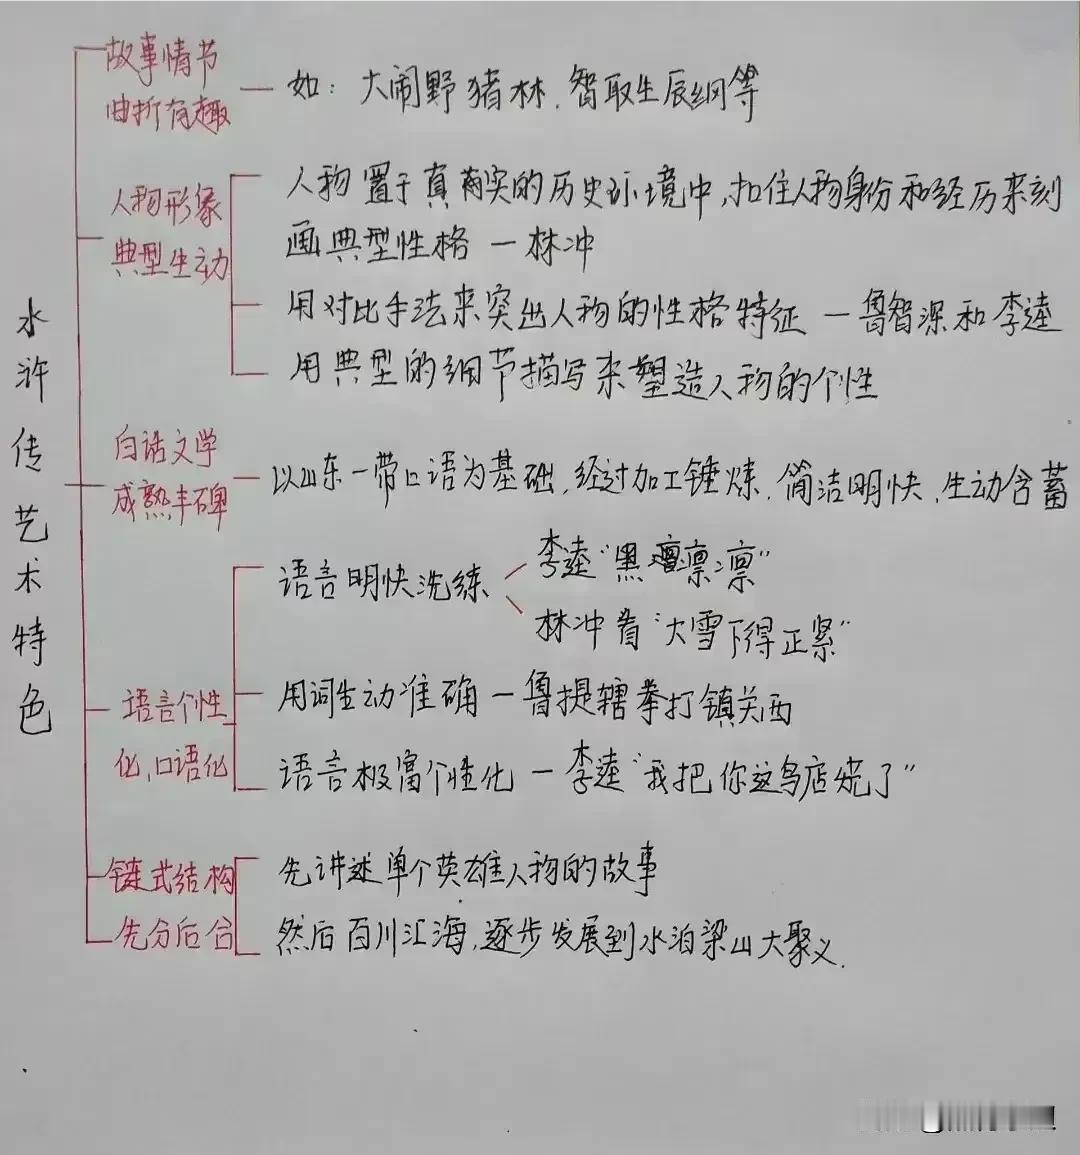 水浒传艺术特色
故事情节
曲折有趣
如：大闹野猪林、智取生辰纲等
人物形象
典型生动
人物置于真实的历史环境中，扣住人物身份和经历来刻
画典型性格 — 林冲
用对比手法来突出人物的性格特征 — 鲁智深和李逵
用典型的细节描写来塑造人物的个性
白话文学
成熟丰碑
以山东一带口语为基础，经过加工锤炼，简洁明快，生动含蓄
语言个性
化、口语化
语言明快洗练
李逵“黑凛凛”
林冲看“大雪下得正紧”
用词生动准确 — 鲁提辖拳打镇关西
语言极富个性化 — 李逵“我把你这鸟店烧了”
链式结构
先分后合
先讲述单个英雄人物的故事
然后百川汇海，逐步发展到水泊梁山大聚义.